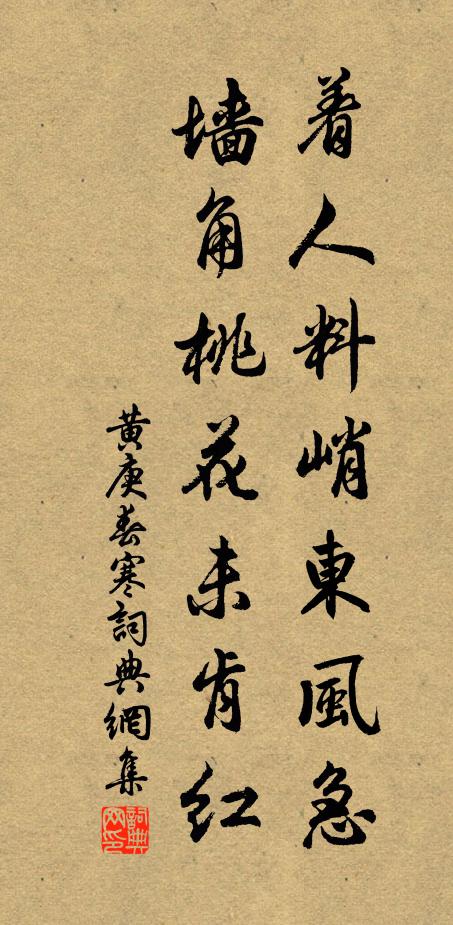 着人料峭東風急
墻角桃花未肯紅
黄庚春寒詞典網集
詞典网印